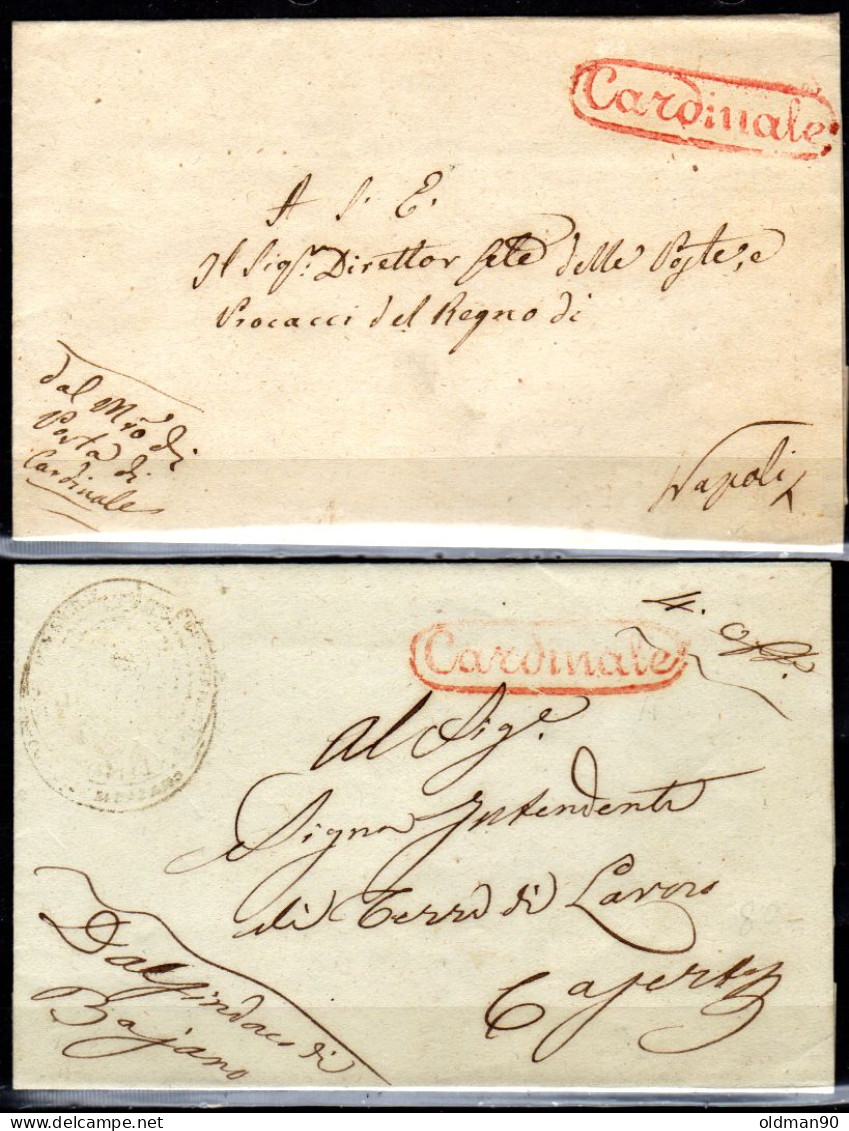 Cardinale
A S. E.
Il Sigr. Direttor Gele delle Poste, e
Procacci del Regno di
Napoli
dal Mro di
Posta di
Cardinale
4.
Cardinale
Al Sige.
Signr Intendente
di Terra di Lavoro
Caserta
Dal Sindaco di
Bajano
80=
oldman90